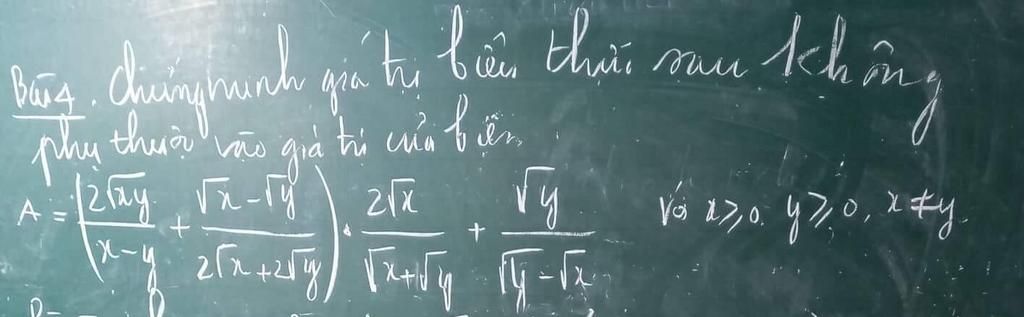 Bài 4. Chứng minh giá trị biểu thức sau không
phụ thuộc vào giá trị của biến
A = (2√xy / x-y + √x-√y / 2√x+2√y) . 2√x / √x+√y + √y / √y-√x Với x≥0. y≥0, x≠y